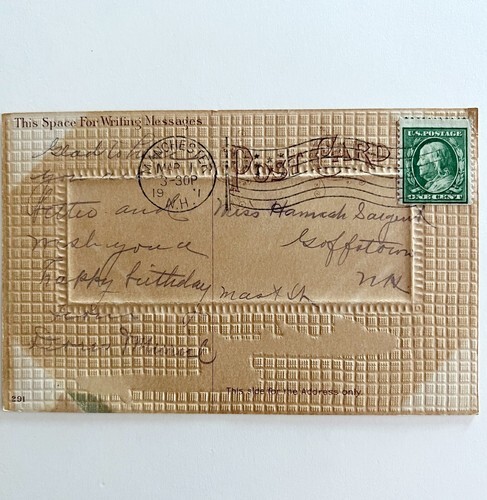 This Space For Writing Messages
POST CARD
U.S. POSTAGE
ONE CENT
MANCHESTER
MAR
3-30P
19 1
N.H.
Glad to
you
Father and
wish you a
happy birthday
Miss Hannah Sargent
Goffstown
Mast St
NH
This side for the Address only
291